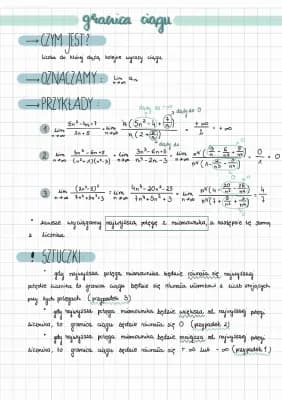 granica ciągu
→ CZYM JEST?
liczba do której dążą kolejne wyrazy ciągu.
→ OZNACZAMY: lim n→∞ aₙ
→ PRZYKŁADY:
dąży do +∞ dąży do 0
① lim n→∞ = lim n→∞ = +∞
dąży do
② lim n→∞ = lim n→∞ 3n³-6n+5 = lim n→∞ = 0/1 = 0
③ lim n→∞ (2n²-5)² = lim n→∞ 4n⁴-20n²+25 = lim n→∞ = 4/7
• zawsze wyciągamy najwyższą potęgę z mianownika, a następnie tę samą
z licznika.
! SZTUCZKI
• gdy najwyższa potęga mianownika będzie równała się najwyższej
potędze licznika to granica ciągu będzie się równała ilorazowi liczb stojących
przy tych potęgach (przypadek 3)
• gdy najwyższa potęga mianownika będzie większa od najwyższej potęgi
licznika, to granica ciągu będzie równała się 0 (przypadek 2)
• gdy najwyższa potęga mianownika będzie mniejsza od najwyższej potęgi
licznika, to granica ciągu będzie równała się +∞ lub -∞ (przypadek 1)